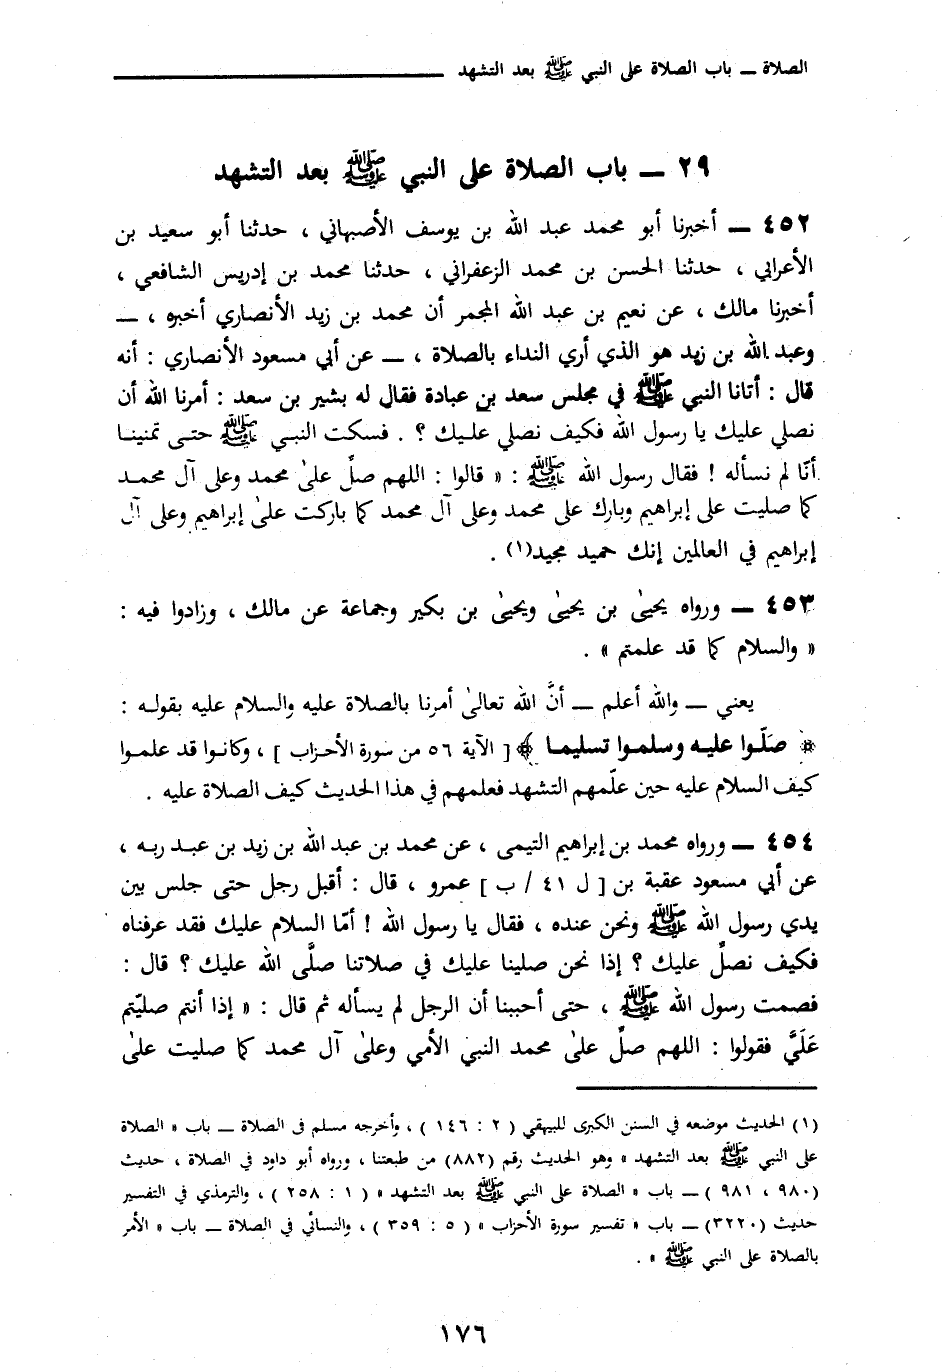 الصلاة ــ باب الصلاة على النبي ﷺ بعد التشهد
٢٩ ــ باب الصلاة على النبي ﷺ بعد التشهد
٤٥٢ ــ أخبرنا أبو محمد عبد الله بن يوسف الأصبهاني ، حدثنا أبو سعيد بن
الأعرابي ، حدثنا الحسن بن محمد الزعفراني ، حدثنا محمد بن إدريس الشافعي ،
أخبرنا مالك ، عن نعيم بن عبد الله المجمر أن محمد بن زيد الأنصاري أخبره ، ــ
وعبد الله بن زيد هو الذي أري النداء بالصلاة ، ــ عن أبي مسعود الأنصاري : أنه
قال : أتانا النبي ﷺ في مجلس سعد بن عبادة فقال له بشير بن سعد : أمرنا الله أن
نصلي عليك يا رسول الله فكيف نصلي عليك ؟ . فسكت النبي ﷺ حتى تمنينا
أنّا لم نسأله ! فقال رسول الله ﷺ : « قالوا : اللهم صلِّ علىٰ محمد وعلى آل محمد
كما صليت على إبراهيم وبارك على محمد وعلى آل محمد كما باركت علىٰ إبراهيم وعلى آل
إبراهيم في العالمين إنك حميد مجيد(١) .
٤٥٣ ــ ورواه يحيىٰ بن يحيىٰ ويحيىٰ بن بكير وجماعة عن مالك ، وزادوا فيه :
« والسلام كما قد علمتم » .
يعني ــ والله أعلم ــ أنَّ الله تعالىٰ أمرنا بالصلاة عليه والسلام عليه بقوله :
﴿ صَلّوا عليه وسلموا تسليما ﴾ [ الآية ٥٦ من سورة الأحزاب ] ، وكانوا قد علموا
كيف السلام عليه حين علّمهم التشهد فعلمهم في هذا الحديث كيف الصلاة عليه .
٤٥٤ ــ ورواه محمد بن إبراهيم التيمى ، عن محمد بن عبد الله بن زيد بن عبد ربه ،
عن أبي مسعود عقبة بن [ ل ٤١ / ب ] عمرو ، قال : أقبل رجل حتى جلس بين
يدي رسول الله ﷺ ونحن عنده ، فقال يا رسول الله ! أمّا السلام عليك فقد عرفناه
فكيف نصلّ عليك ؟ إذا نحن صلينا عليك في صلاتنا صلَّى الله عليك ؟ قال :
فصمت رسول الله ﷺ ، حتى أحببنا أن الرجل لم يسأله ثم قال : « إذا أنتم صليّتم
عَلَيَّ فقولوا : اللهم صلِّ علىٰ محمد النبي الأمي وعلىٰ آل محمد كما صليت علىٰ
(١) الحديث موضعه في السنن الكبرى للبيهقي ( ٢ : ١٤٦ ) ، وأخرجه مسلم فى الصلاة ــ باب « الصلاة
على النبي ﷺ بعد التشهد » وهو الحديث رقم (٨٨٢) من طبعتنا ، ورواه أبو داود في الصلاة ، حديث
(٩٨٠ ، ٩٨١ ) ــ باب « الصلاة على النبي ﷺ بعد التشهد » ( ١ : ٢٥٨ ) ، والترمذي في التفسير
حديث (٣٢٢٠) ــ باب « تفسير سورة الأحزاب » ( ٥ : ٣٥٩ ) ، والنسائي في الصلاة ــ باب « الأمر
بالصلاة على النبي ﷺ » .
١٧٦